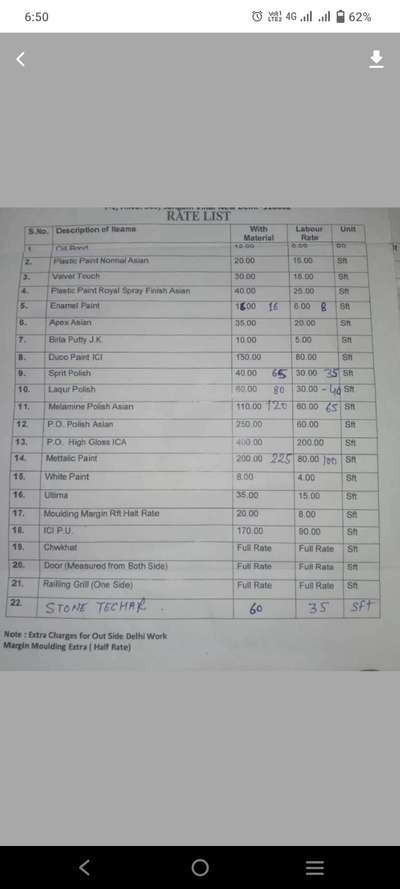 6:50
4G
62%
RATE LIST
S.No. Description of Iteams With Material Labour Rate Unit
1.
2. Plastic Paint Normal Asian 20.00 15.00 Sft
3. Velvet Touch 30.00 18.00 Sft
4. Plastic Paint Royal Spray Finish Asian 40.00 25.00 Sft
5. Enamel Paint 16 6.00 8 Sft
6. Apex Asian 35.00 20.00 Sft
7. Birla Putty J.K. 10.00 5.00 Sft
8. Duco Paint ICI 150.00 80.00 Sft
9. Sprit Polish 40.00 65 30.00 35 Sft
10. Laqur Polish 60.00 80 30.00 - 40 Sft
11. Melamine Polish Asian 110.00 120 60.00 65 Sft
12. P.O. Polish Asian 250.00 60.00 Sft
13. P.O. High Gloss ICA 400.00 200.00 Sft
14. Mettalic Paint 200.00 225 80.00 100 Sft
15. White Paint 8.00 4.00 Sft
16. Ultima 35.00 15.00 Sft
17. Moulding Margin Rft Halt Rate 20.00 8.00 Sft
18. ICI P.U. 170.00 90.00 Sft
19. Chwkhat Full Rate Full Rate Sft
20. Door (Measured from Both Side) Full Rate Full Rate Sft
21. Railling Grill (One Side) Full Rate Full Rate Sft
22. STONE TECHAR . 60 35 Sft
Note : Extra Charges for Out Side Delhi Work
Margin Moulding Extra ( Half Rate)